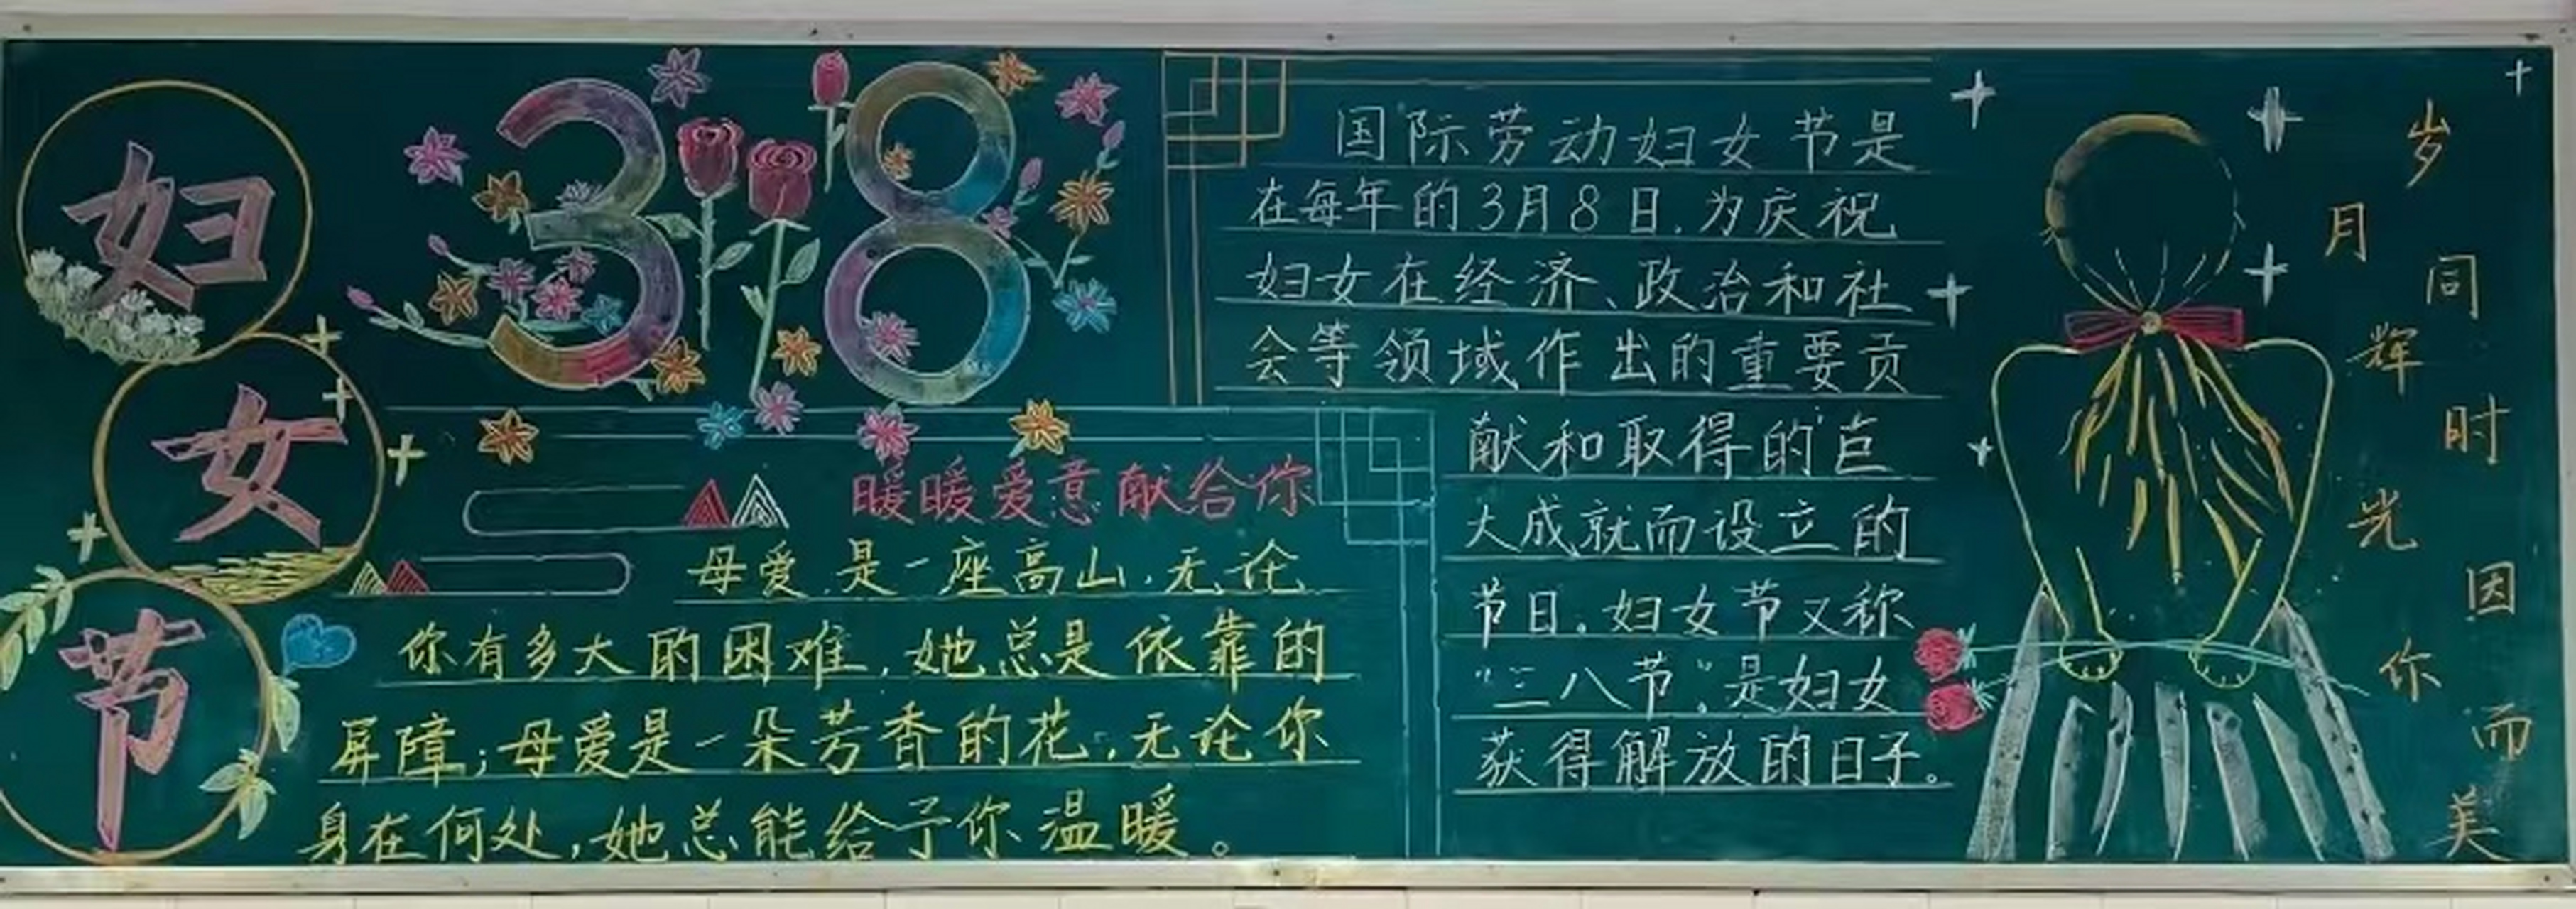 妇
女
节
38
暖暖爱意献给你
母爱是一座高山,无论
你有多大的困难,她总是依靠的
屏障;母爱是一朵芳香的花,无论你
身在何处,她总能给予你温暖。
国际劳动妇女节是
在每年的3月8日.为庆祝
妇女在经济、政治和社
会等领域作出的重要贡
献和取得的巨
大成就而设立的
节日。妇女节又称
“三八节”。是妇女
获得解放的日子。
岁月同辉
时光因你而美